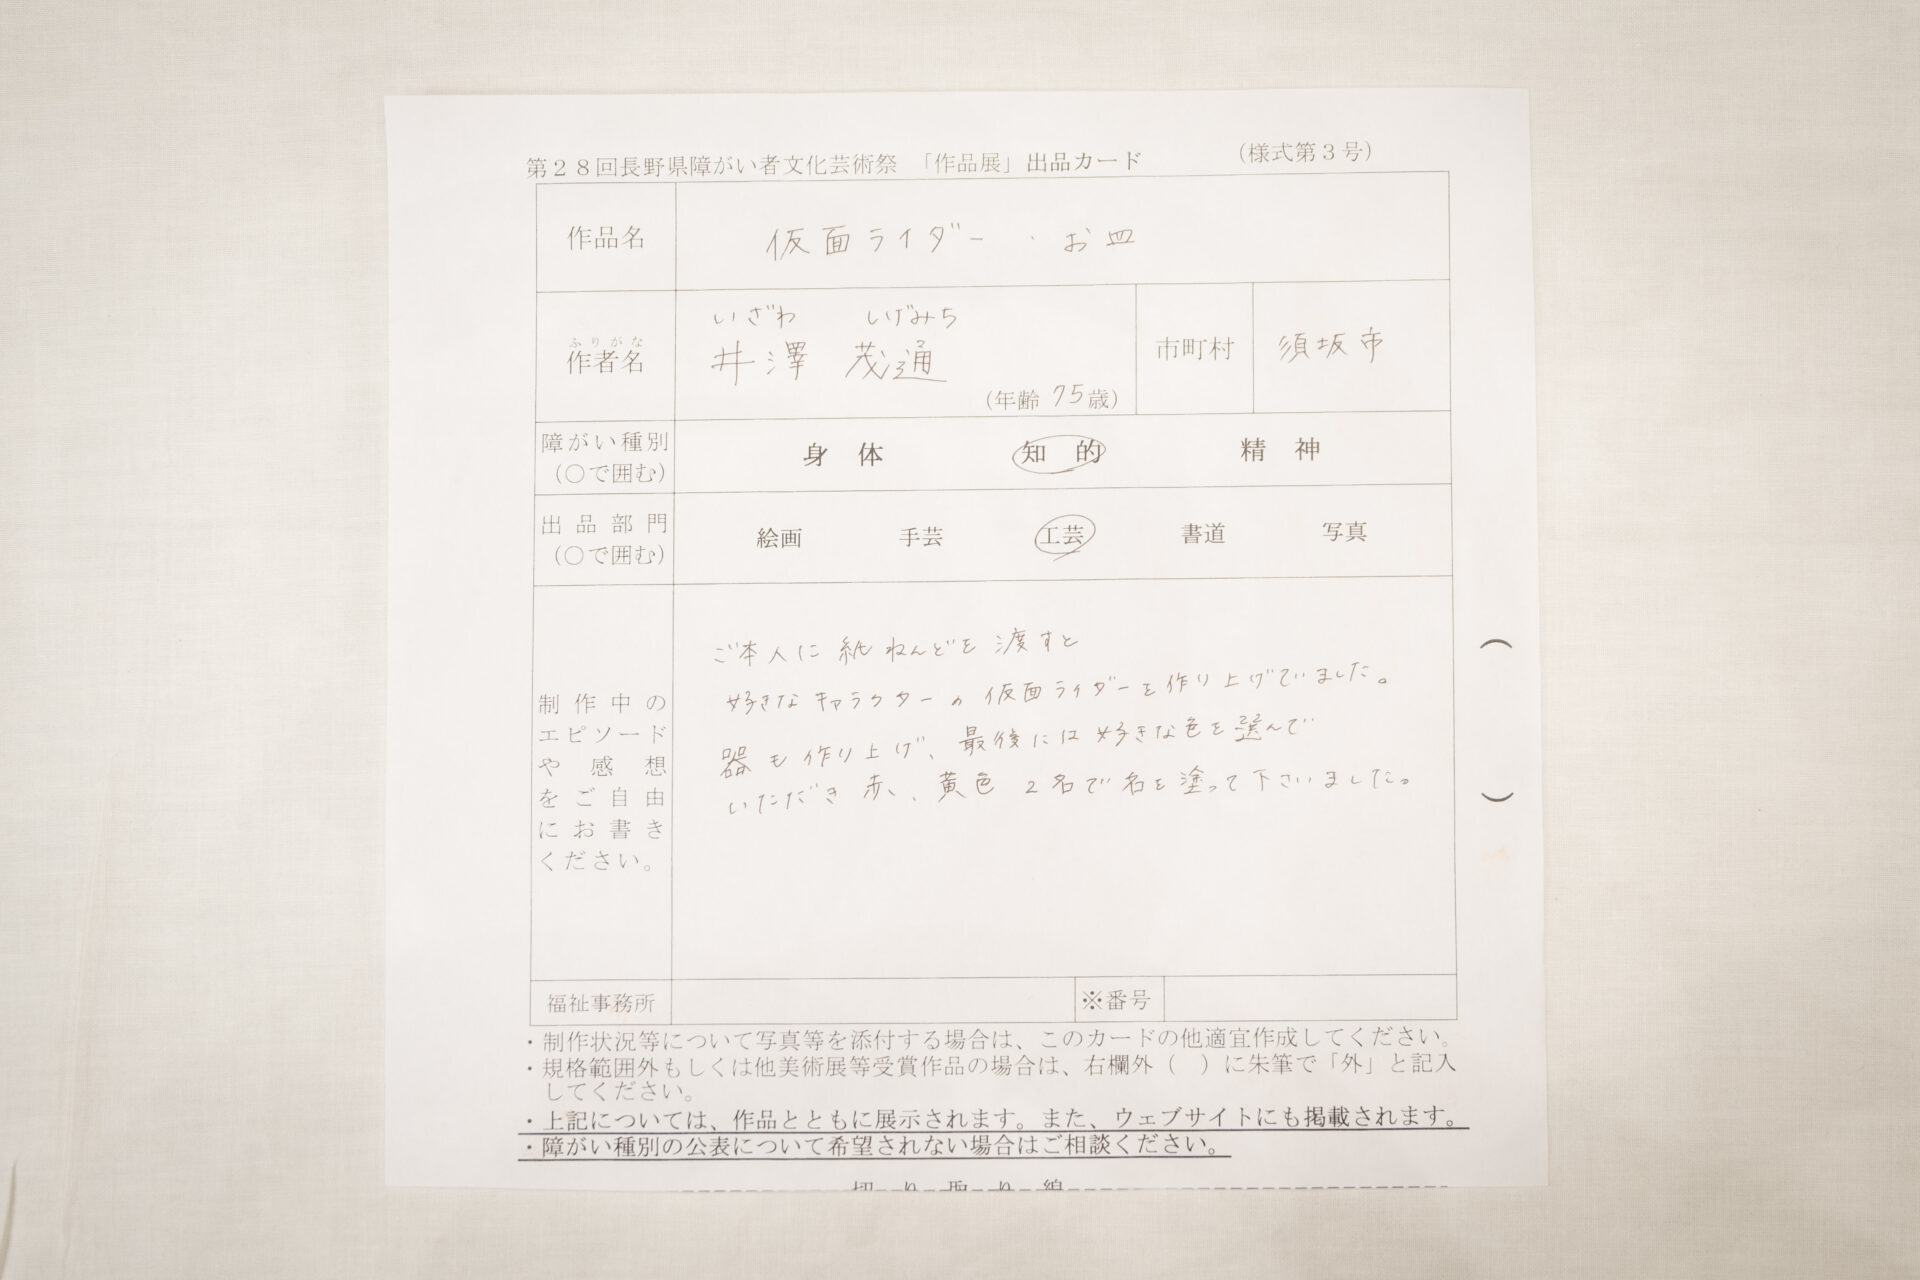 第28回長野県障がい者文化芸術祭 「作品展」出品カード （様式第3号）
作品名 仮面ライダー ・ お皿
いざわ しげみち
ふりがな
作者名 井澤 茂通 （年齢 75歳） 市町村 須坂市
障がい種別 身体 知的 精神
（○で囲む）
出品部門 絵画 手芸 工芸 書道 写真
（○で囲む）
制作中の
エピソード
や感想
をご自由
にお書き
ください。
ご本人に紙ねんどを渡すと
好きなキャラクターの仮面ライダーを作り上げていました。
器も作り上げ、最後には好きな色を選んで
いただき赤、黄色 2名で名を塗って下さいました。
（ ）
福祉事務所 ※番号
・制作状況等について写真等を添付する場合は、このカードの他適宜作成してください。
・規格範囲外もしくは他美術展等受賞作品の場合は、右欄外（ ）に朱筆で「外」と記入
してください。
・上記については、作品とともに展示されます。また、ウェブサイトにも掲載されます。
・障がい種別の公表について希望されない場合はご相談ください。
切り取り線